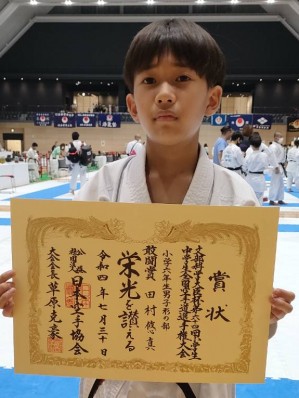 賞状
文部科学大臣杯第六十四回小学生
中学生全国空手道選手権大会
小学六年生男子形の部
敢闘賞 田村
栄光を讃える
令和四年七月三十日
公益社団法人 日本空手協会
大会会長 草原克豪